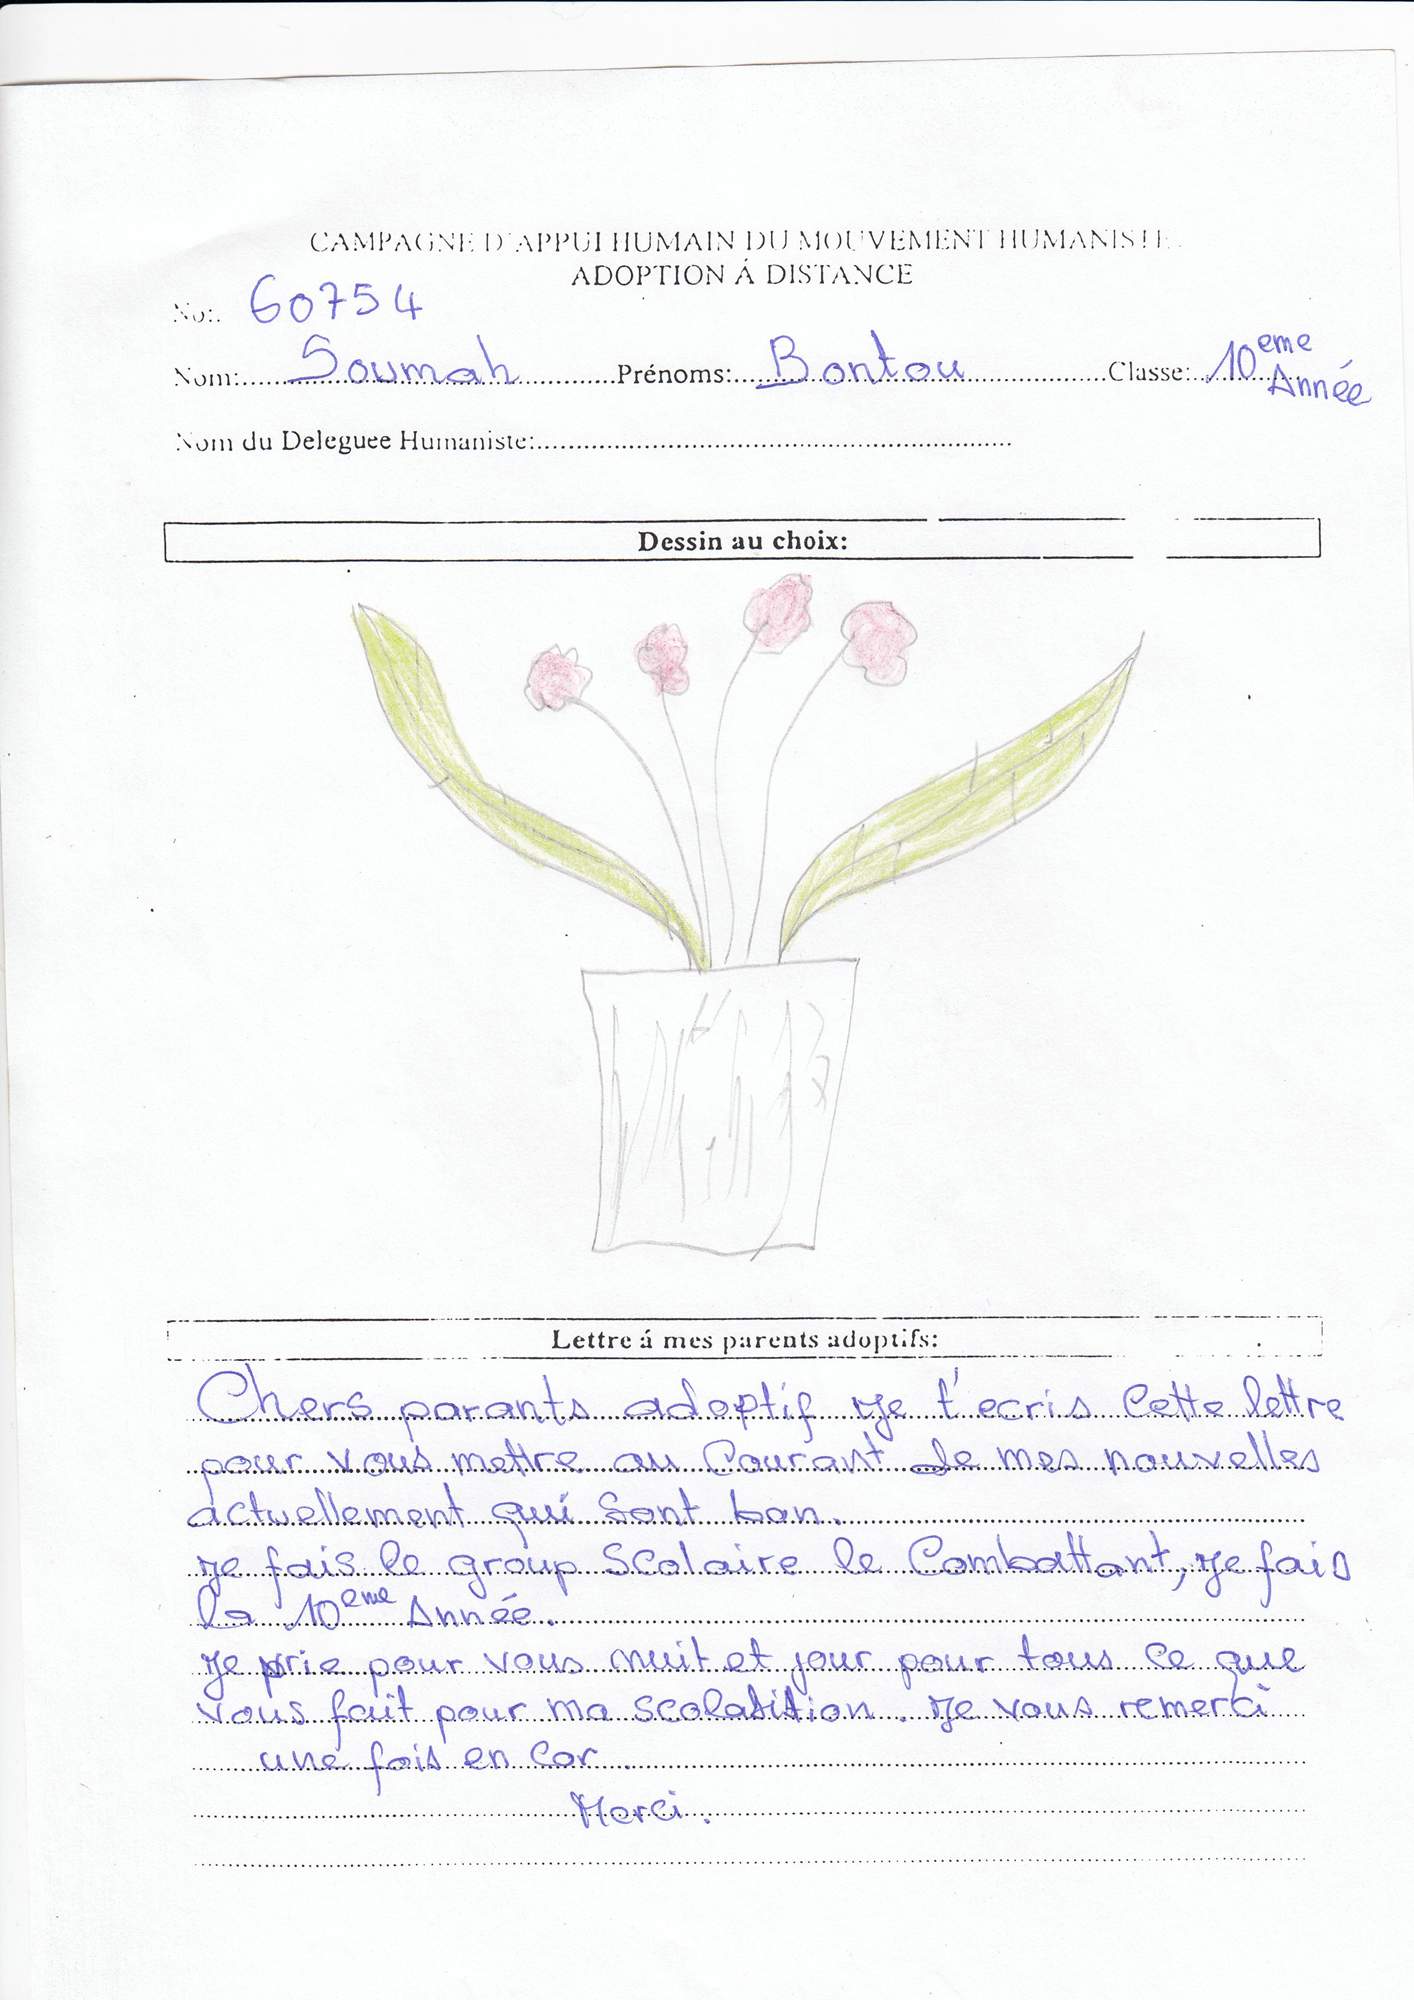 CAMPAGNE D'APPUI HUMAIN DU MOUVEMENT HUMANISTE
ADOPTION Á DISTANCE
No:. 60754
Nom:....Soumah....Prénoms:....Bontou....Classe:..10eme Année
Nom du Deleguee Humaniste:..........
Dessin au choix:
Lettre á mes parents adoptifs:
Chers parants adoptif Je t'ecris Cette lettre
pour vous mettre au Courant de mes nouvelles
actuellement qui Sont bon.
Je fais le group Scolaire le Combattant, Je fais
la 10eme Année.
Je prie pour vous nuit et jour pour tous ce que
vous fait pour ma scolatition. Je vous remerci
une fois en cor.
Merci.